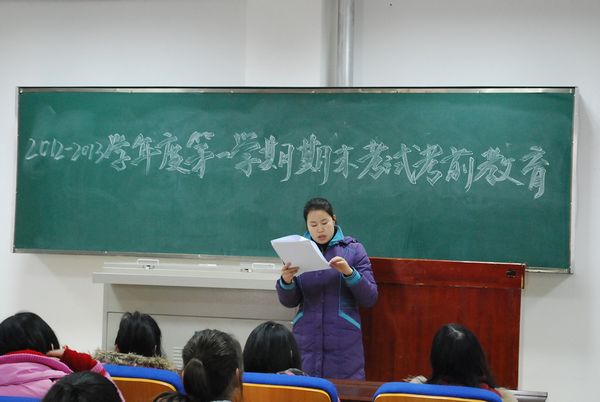 2012-2013学年度第一学期期末考试考前教育